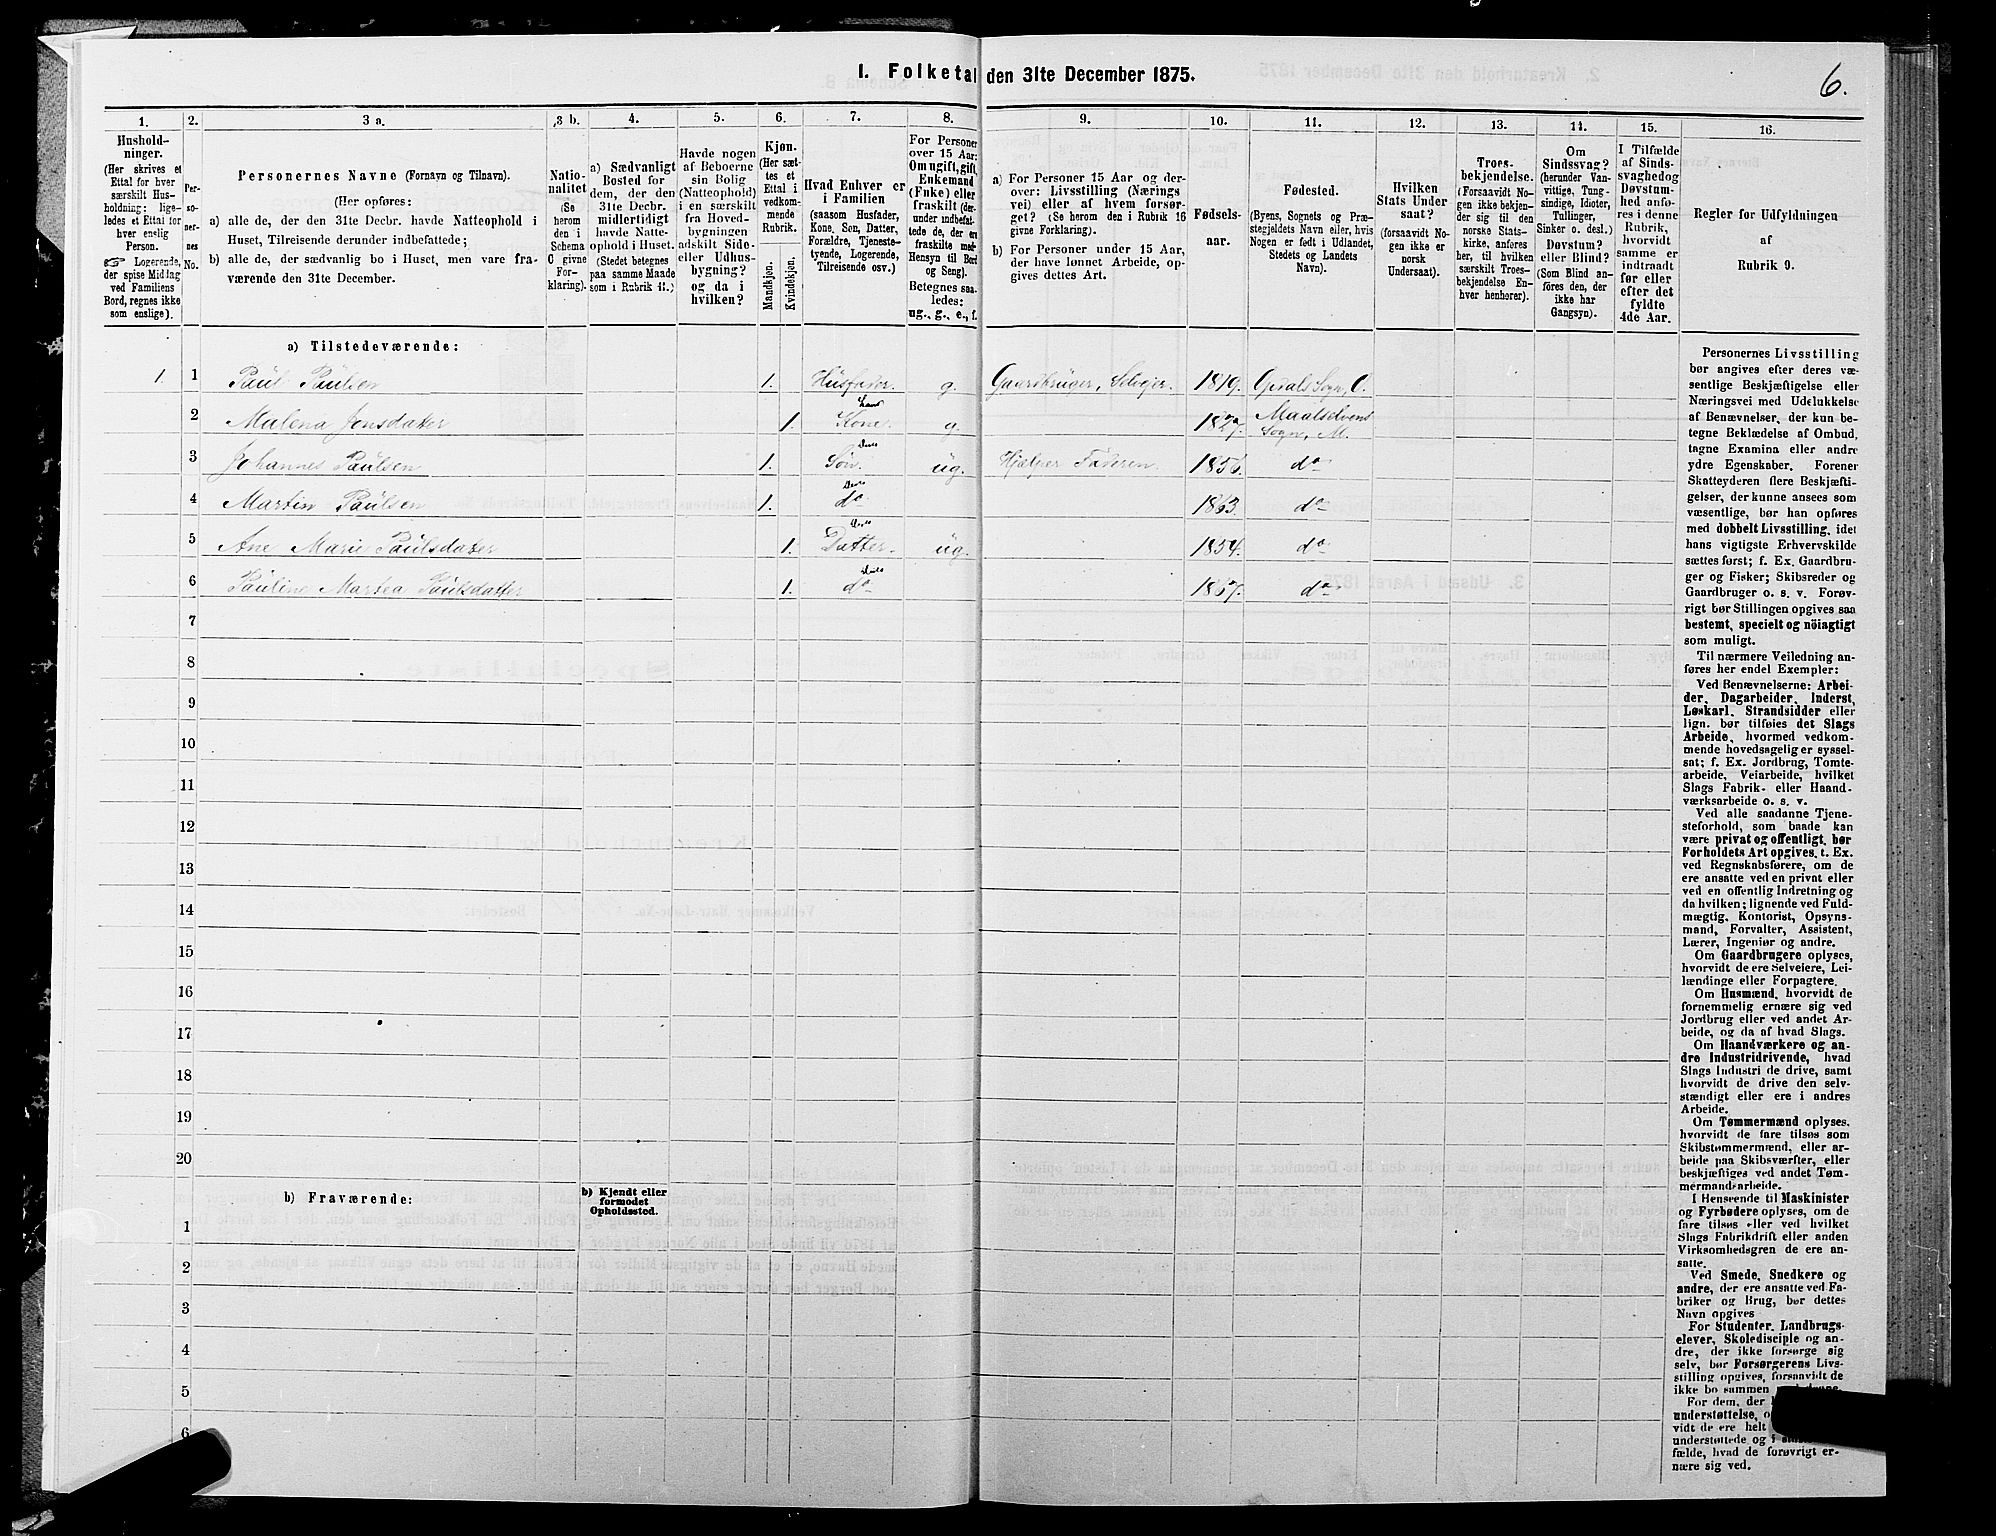 I. Folketal den 31te December 1875.
6.
1.
Hushold-
ninger.
(Her skrives et
Ettal for hver
særskilt Hus-
holdning: lige-
ledes et Ettal for
hver enslig
Person.
☞ Logerende,
der spise Middag
ved Familiens
Bord, regnes ikke
som enslige).
2.
Per-
so-
ner-
nes
No.
3 a.
Personernes Navne (Fornavn og Tilnavn).
(Her opføres:
a) alle de, der den 31te Decbr. havde Natteophold i
Huset, Tilreisende derunder indbefattede;
b) alle de, der sædvanlig bo i Huset, men vare fra-
værende den 31te December.
3 b.
Natio-
nalitet
(Se
herom
den i
Schema
C givne
For-
klaring).
4.
a) Sædvanligt
Bosted for
dem, der den
31te Decbr.
midlertidigt
havde Natte-
ophold i Huset.
(Stedet betegnes
paa samme Maade
som i Rubrik 11.)
5.
Havde nogen
af Beboerne
sin Bolig
(Natteophold)
i en særskilt
fra Hoved-
bygningen
adskilt Side-
eller Udhus-
bygning?
og da i
hvilken?
6.
Kjøn.
(Her sæt-
tes et
Ettal i
vedkom-
mende
Rubrik.
Mandkjøn.
Kvindekjøn.
7.
Hvad Enhver er
i Familien
(saasom Husfader,
Kone, Søn, Datter,
Forældre, Tjeneste-
tyende, Logerende,
Tilreisende osv.)
8.
For Personer
over 15 Aar:
Om ugift, gift,
Enkemand
(Enke) eller
fraskilt (der-
under indbefat-
tede de, der ere
fraskilte med
Hensyn til Bord
og Seng).
Betegnes saa-
ledes:
ug., g., e., f.
9.
a) For Personer 15 Aar og der-
over: Livsstilling (Nærings
vei) eller af hvem forsør-
get? (Se herom den i Rubrik 16
givne Forklaring).
b) For Personer under 15 Aar,
der have lønnet Arbeide, op-
gives dettes Art.
10.
Fødsels-
aar.
11.
Fødested.
(Byens, Sognets og Præ-
stegjeldets Navn eller, hvis
Nogen er født i Udlandet,
Stedets og Landets
Navn).
12.
Hvilken
Stats Under
saat?
(forsaavidt No-
gen ikke er
norsk
Undersaat).
13.
Troes-
bekjendelse.
(Forsaavidt No-
gen ikke bekjen-
der sig til den
norske Stats-
kirke, anføres
her, til hvilken
særskilt Troes-
bekjendelse En-
hver henhører).
14.
Om
Sindssvag?
(herunder Van-
vittige, Tung-
sindige, Idioter,
Tullinger,
Sinker o. desl.)
Døvstum?
eller Blind?
(Som Blind an-
føres den, der
ikke har
Gangsyn).
15.
I Tilfælde
af Sinds-
svaghed og
Døvstum-
hed anfø-
res i denne
Rubrik,
hvorvidt
samme er
indtraadt
før eller
efter det
fyldte
4de Aar.
16.
Regler for Udfyldningen
af
Rubrik 9.
a) Tilstedeværende:
1. 1 Paul Paulsen 1. Husfader. g. Gaardbruger, Selvejer. 1819. Opdals Sogn, O.
2 Malena Jensdater 1. hans Kone. g. 1827. Maalselvens Sogn, M.
3 Johannes Paulsen 1. deres Søn. ug. Hjelper Faderen. 1856. do
4 Martin Paulsen 1. deres do 1863. do
5 Ane Marie Paulsdater 1. deres Datter. ug. 1854. do
6 Pauline Martea Paulsdatter 1. deres do 1867. do
7
8
9
10
11
12
13
14
15
16
17
18
19
20
b) Fraværende:
b) Kjendt eller
formodet
Opholdssted.
1
2
3
4
5
6
Personernes Livsstilling
bør angives efter deres væ-
sentlige Beskjæftigelse eller
Næringsvei med Udelukkelse
af Benævnelser, der kun be-
tegne Beklædelse af Ombud,
tagne Examina eller andre
ydre Egenskaber. Forener
Skatteyderen flere Beskjæfti-
gelser, der kunne ansees som
væsentlige, bør han opføres
med dobbelt Livsstilling, idet
hans vigtigste Erhvervskilde
sættes først; f. Ex. Gaardbru-
ger og Fisker; Skibsreder og
Gaardbruger o. s. v. Forøv-
rigt bør Stillingen opgives saa
bestemt, specielt og nöiagtigt
som muligt.
Til nærmere Veiledning an-
føres her endel Exempler:
Ved Benævnelserne: Arbei-
der, Dagarbeider, Inderst,
Løskarl, Strandsidder eller
lign. bør tilføies det Slags
Arbeide, hvormed vedkom-
mende hovedsagelig er syssel-
sat; f. Ex. Jordbrug, Tomte-
arbeide, Veiarbeide, hvilket
Slags Fabrik- eller Haand-
værksarbeide o. s. v.
Ved alle saadanne Tjene-
steforhold, som baade kan
være privat og offentligt, bør
Forholdets Art opgives, t. Ex.
ved Regnskabsførere, om de
ere ansatte ved en privat eller
ved en offentlig Indretning og
da hvilken; lignende ved Fuld-
mægtig, Kontorist, Opsyns-
mand, Forvalter, Assistent,
Lærer, Ingeniør og andre.
Om Gaardbrugere oplyses,
hvorvidt de ere Selveiere, Lei-
lændinge eller Forpagtere.
Om Husmænd, hvorvidt de
fornemmelig ernære sig ved
Jordbrug eller ved andet Ar-
beide, og da af hvad Slags.
Om Haandværkere og an-
dre Industridrivende, hvad
Slags Industri de drive, samt
hvorvidt de drive den selv-
stændigt eller ere i andres
Arbeide.
Om Tømmermænd oplyses,
hvorvidt de fare tilsøs som
Skibstømmermænd, eller ar-
beide paa Skibsværfter, eller
beskjæftiges ved andet Tøm-
mermandsarbeide.
I Henseende til Maskinister
og Fyrbødere oplyses, om de
fare tilsøs eller ved hvilket
Slags Fabrikdrift eller anden
Virksomhedsgren de ere an-
satte.
Ved Smede, Snedkere og
andre, der ere ansatte ved Fa-
briker og Brug, bør dettes
Navn opgives
For Studenter, Landbrugs-
elever, Skoledisciple og an-
dre, der ikke forsørge sig
selv, bør Forsørgerens Livs-
stilling opgives, forsaavidt de
ikke bo sammen
For dem, der
understøttelse,
vidt de ere helt
understøttede og i
fælde, hvad de forøvrigt er-
nære sig ved.